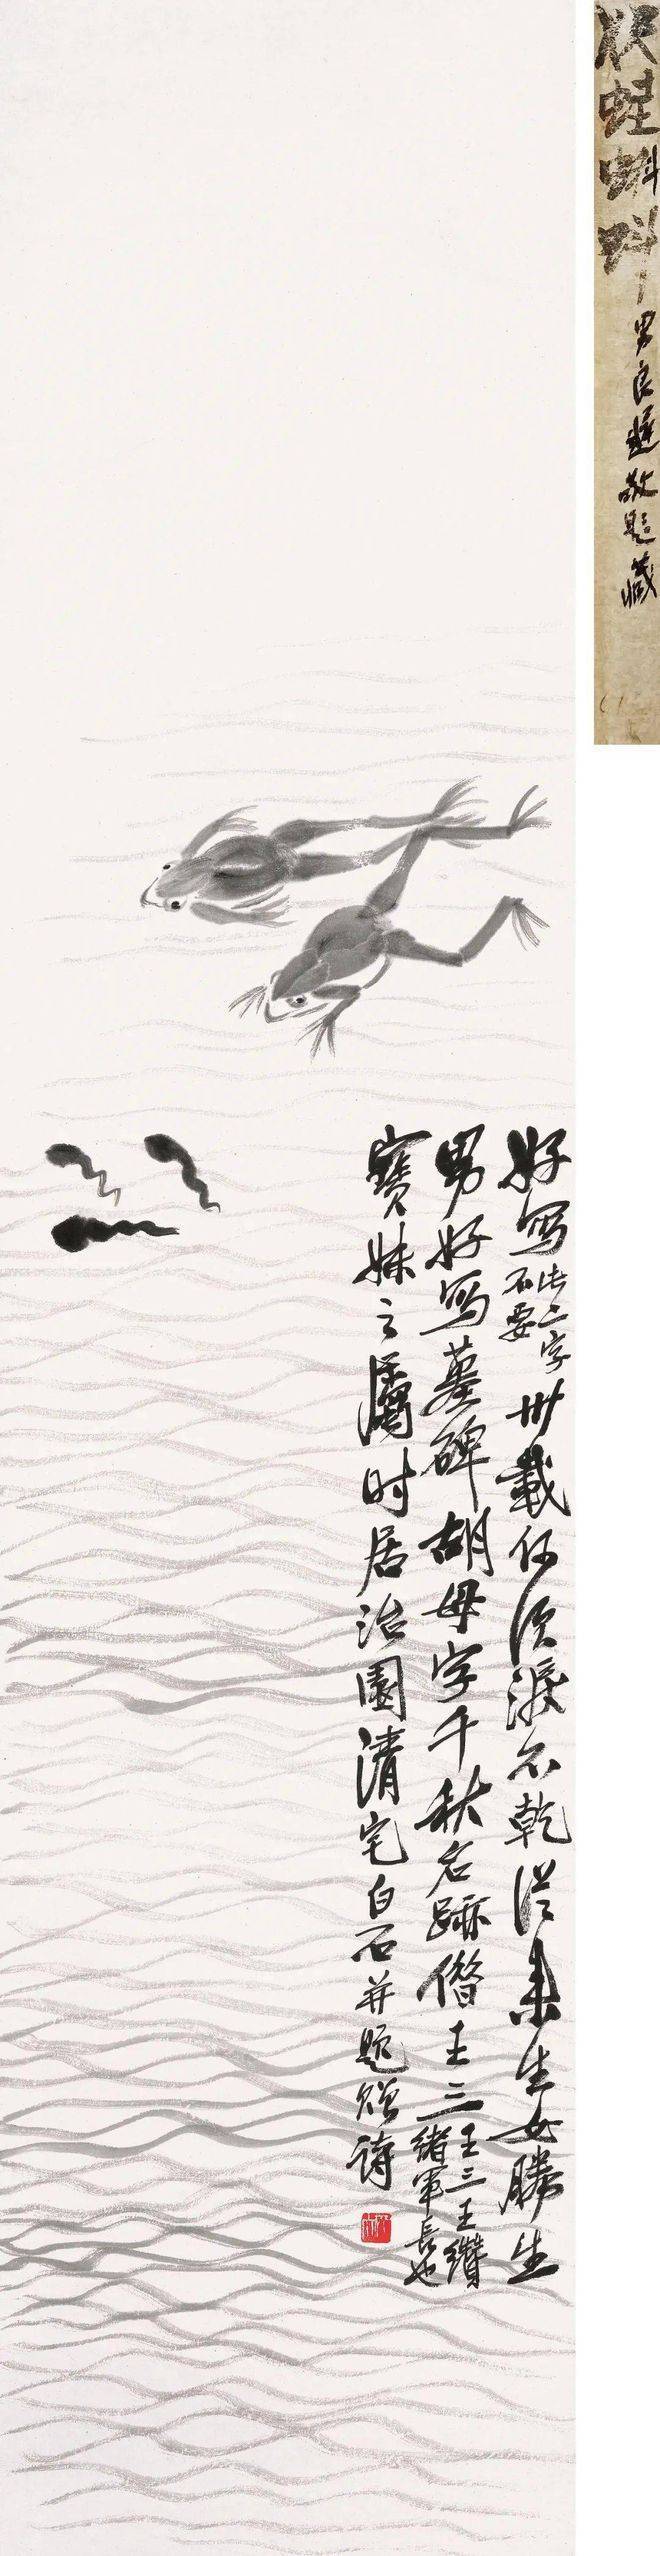 好写此二字不要卅载何须泪不乾从来生女胜生
男好写墓碑胡母字千秋名迹僭王三王三王缵绪军长也
宝妹之属时居治园清宅白石并题赠诗
状蛙蝌蚪
男良迟敬题藏